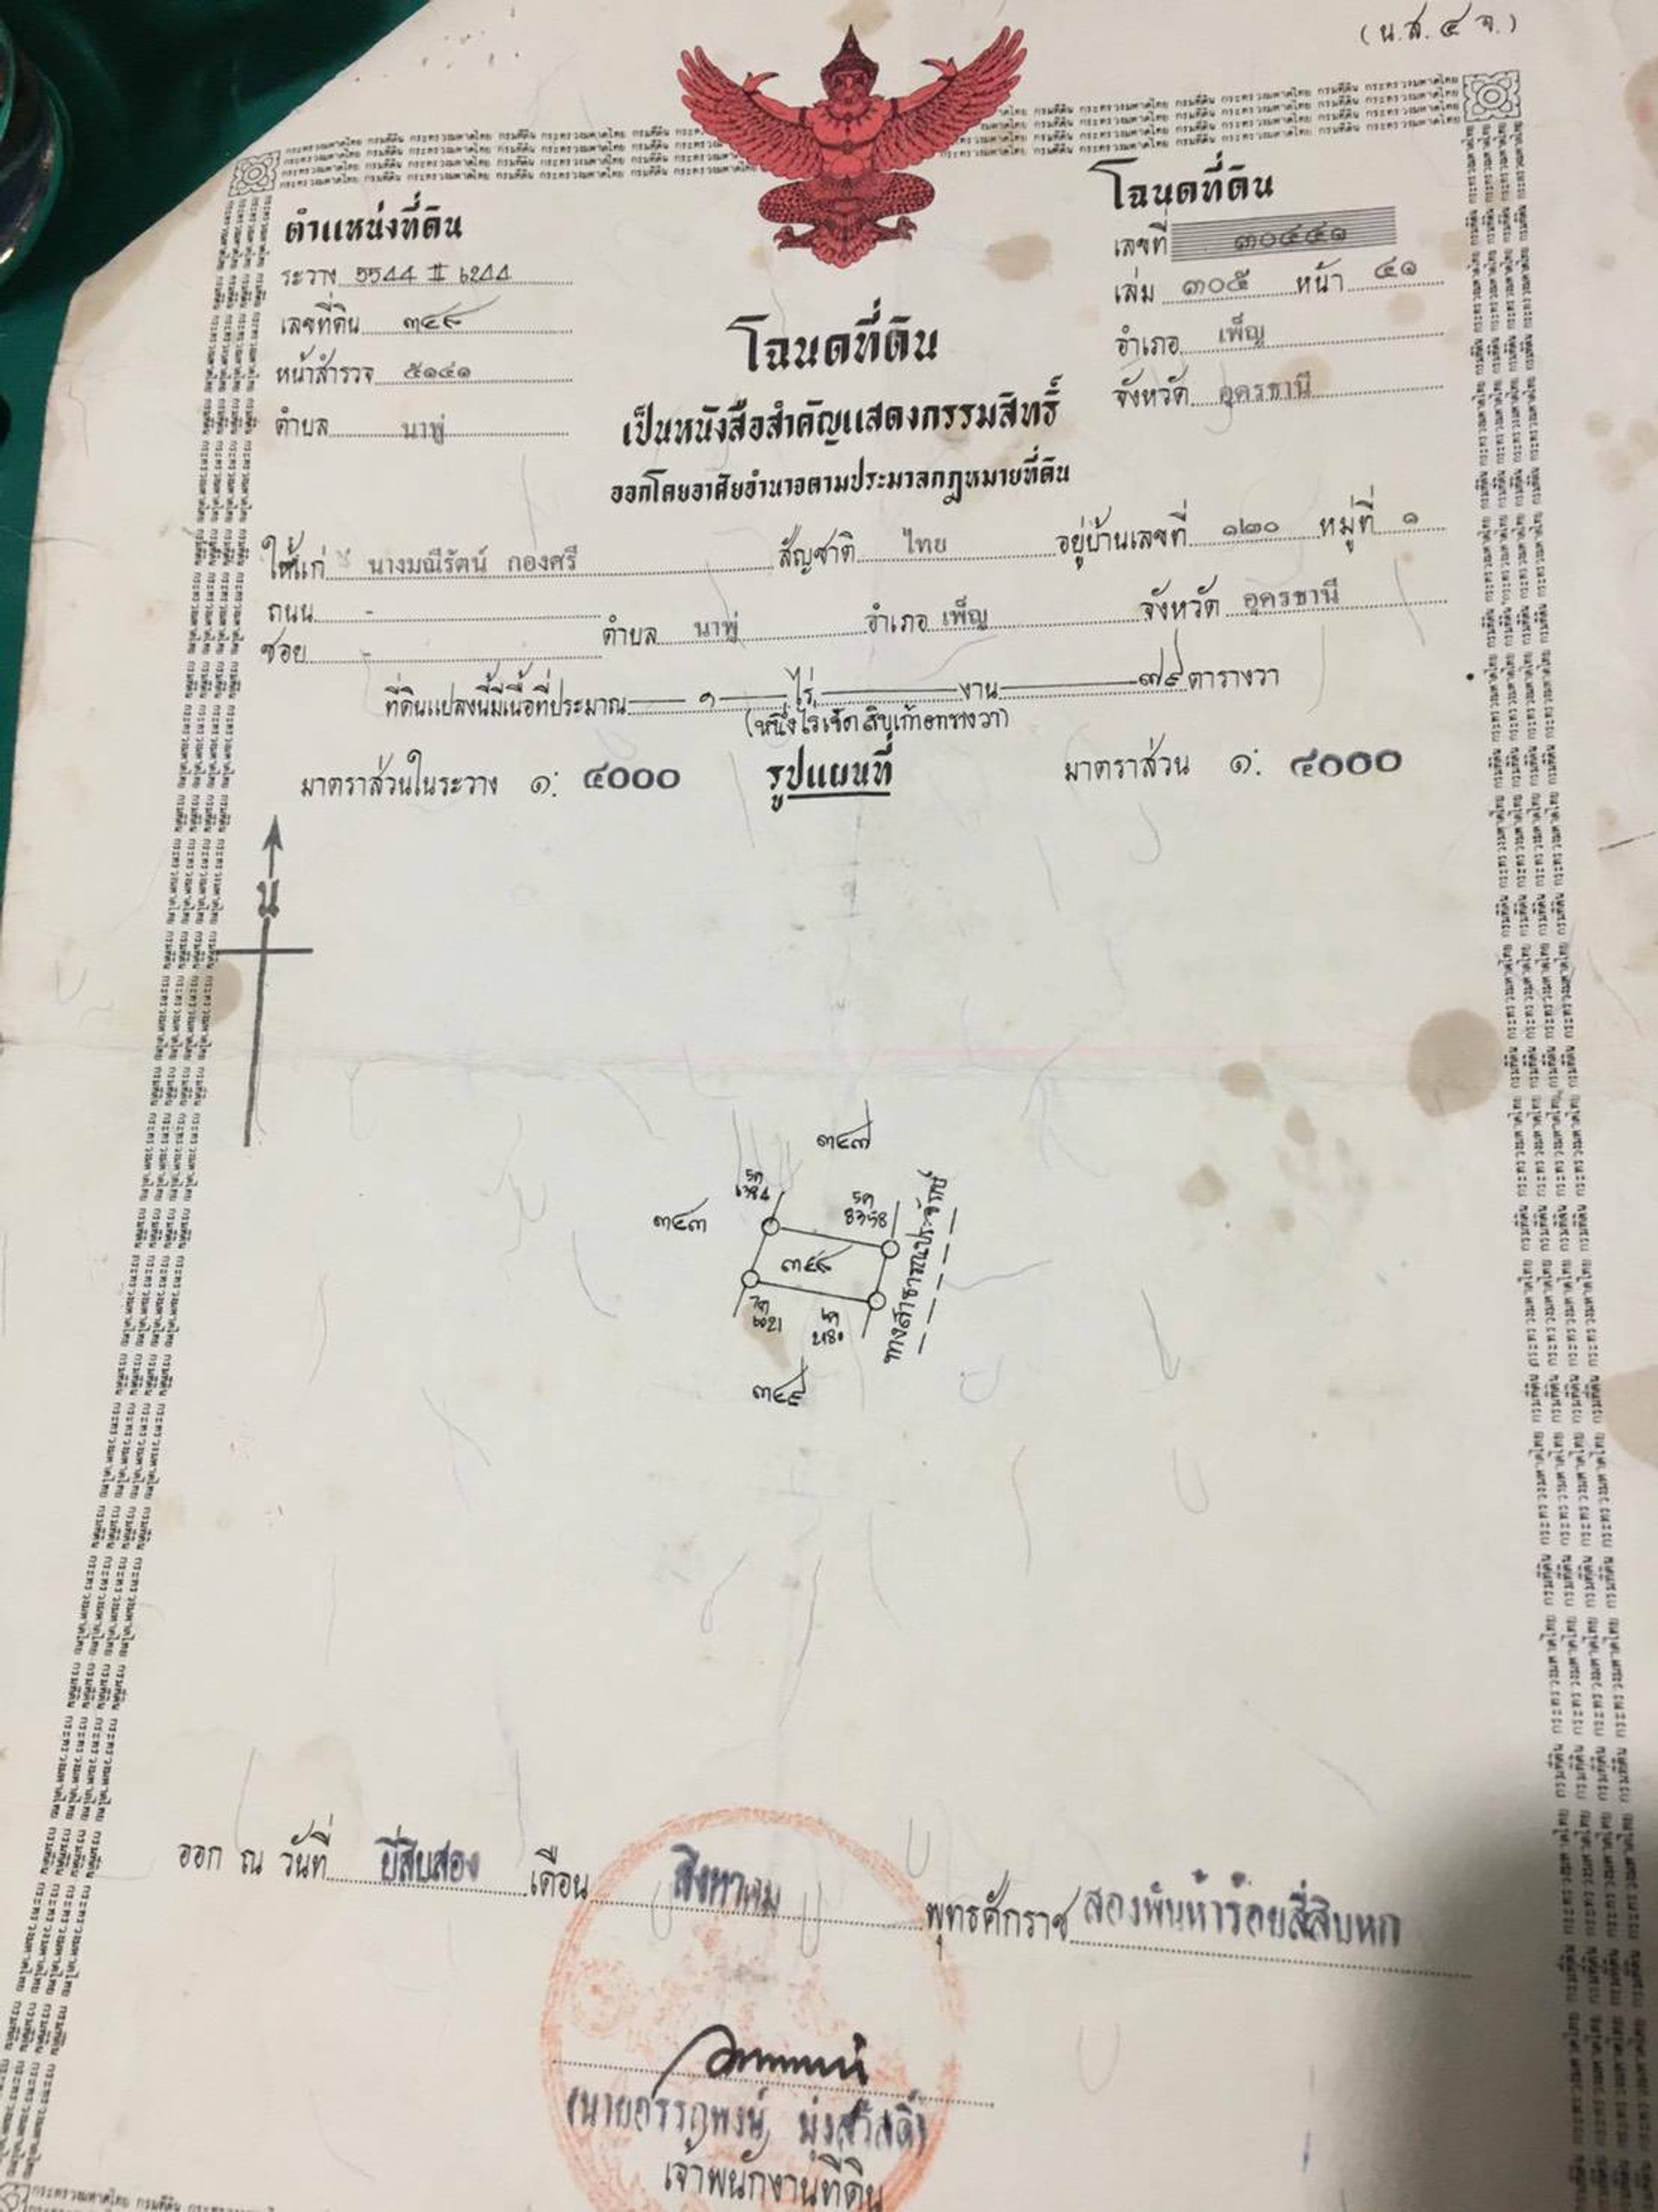 (น.ส. ๔ จ.)
ตำแหน่งที่ดิน
ระวาง 5544 II 6244
เลขที่ดิน ๓๔๘
หน้าสำรวจ ๕๑๔๑
ตำบล นาพู่
โฉนดที่ดิน
เลขที่ ๓๐๔๔๑
เล่ม ๓๐๕ หน้า ๔๑
อำเภอ เพ็ญ
จังหวัด อุดรธานี
โฉนดที่ดิน
เป็นหนังสือสำคัญแสดงกรรมสิทธิ์
ออกโดยอาศัยอำนาจตามประมวลกฎหมายที่ดิน
ให้แก่ นางมณีรัตน์ กองศรี สัญชาติ ไทย อยู่บ้านเลขที่ ๑๒๐ หมู่ที่ ๑
ถนน -
ซอย - ตำบล นาพู่ อำเภอ เพ็ญ จังหวัด อุดรธานี
ที่ดินแปลงนี้มีเนื้อที่ประมาณ ๑ ไร่ งาน ๗๙ ตารางวา
(หนึ่งไร่เจ็ดสิบเก้าตารางวา)
มาตราส่วนในระวาง ๑: ๔๐๐๐ รูปแผนที่ มาตราส่วน ๑: ๔๐๐๐
น
๓๔๗
๓๔๓
5ด
8358
๓๔๘
ทางสาธารณประโยชน์
๓๔๙
ออก ณ วันที่ ยี่สิบสอง เดือน สิงหาคม พุทธศักราช สองพันห้าร้อยสี่สิบหก
เจ้าพนักงานที่ดิน